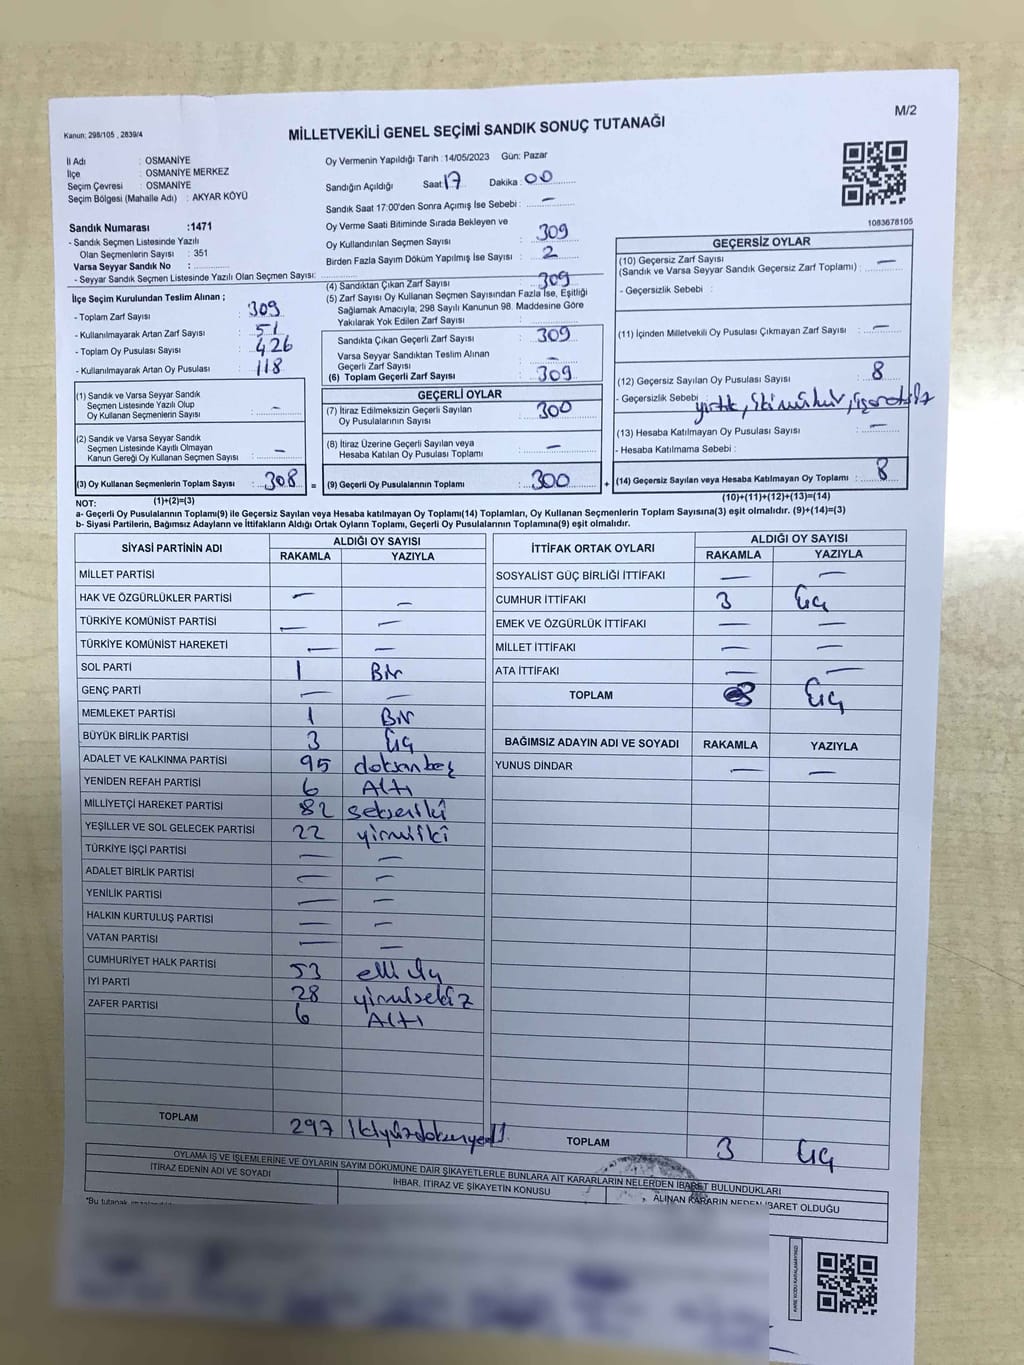 M/2
Kanun: 298/105 , 2839/4
MİLLETVEKİLİ GENEL SEÇİMİ SANDIK SONUÇ TUTANAĞI
İl Adı : OSMANİYE
İlçe : OSMANİYE MERKEZ
Seçim Çevresi : OSMANİYE
Seçim Bölgesi (Mahalle Adı) : AKYAR KÖYÜ
Sandık Numarası :1471
- Sandık Seçmen Listesinde Yazılı
Olan Seçmenlerin Sayısı : 351
Varsa Seyyar Sandık No :
- Seyyar Sandık Seçmen Listesinde Yazılı Olan Seçmen Sayısı:
Oy Vermenin Yapıldığı Tarih :14/05/2023 Gün: Pazar
Sandığın Açıldığı Saat: 17 Dakika : 00
Sandık Saat 17:00'den Sonra Açımış İse Sebebi : —
Oy Verme Saati Bitiminde Sırada Bekleyen ve
Oy Kullandırılan Seçmen Sayısı : 309
Birden Fazla Sayım Döküm Yapılmış İse Sayısı : 2
1083678105
İlçe Seçim Kurulundan Teslim Alınan ;
- Toplam Zarf Sayısı : 309
- Kullanılmayarak Artan Zarf Sayısı : 51
- Toplam Oy Pusulası Sayısı : 426
- Kullanılmayarak Artan Oy Pusulası : 118
(1) Sandık ve Varsa Seyyar Sandık
Seçmen Listesinde Yazılı Olup
Oy Kullanan Seçmenlerin Sayısı : —
(2) Sandık ve Varsa Seyyar Sandık
Seçmen Listesinde Kayıtlı Olmayan
Kanun Gereği Oy Kullanan Seçmen Sayısı : —
(3) Oy Kullanan Seçmenlerin Toplam Sayısı : 308 =
(1)+(2)=(3)
(4) Sandıktan Çıkan Zarf Sayısı : 309
(5) Zarf Sayısı Oy Kullanan Seçmen Sayısından Fazla İse, Eşitliği
Sağlamak Amacıyla; 298 Sayılı Kanunun 98. Maddesine Göre
Yakılarak Yok Edilen Zarf Sayısı :
Sandıkta Çıkan Geçerli Zarf Sayısı : 309
Varsa Seyyar Sandıktan Teslim Alınan
Geçerli Zarf Sayısı : —
(6) Toplam Geçerli Zarf Sayısı : 309
GEÇERLİ OYLAR
(7) İtiraz Edilmeksizin Geçerli Sayılan
Oy Pusulalarının Sayısı : 300
(8) İtiraz Üzerine Geçerli Sayılan veya
Hesaba Katılan Oy Pusulası Toplamı : —
(9) Geçerli Oy Pusulalarının Toplamı : 300 +
GEÇERSİZ OYLAR
(10) Geçersiz Zarf Sayısı
(Sandık ve Varsa Seyyar Sandık Geçersiz Zarf Toplamı) : —
- Geçersizlik Sebebi :
(11) İçinden Milletvekili Oy Pusulası Çıkmayan Zarf Sayısı : —
(12) Geçersiz Sayılan Oy Pusulası Sayısı : 8
- Geçersizlik Sebebi : yırtık, iki mühür,
(13) Hesaba Katılmayan Oy Pusulası Sayısı : —
- Hesaba Katılmama Sebebi :
(14) Geçersiz Sayılan veya Hesaba Katılmayan Oy Toplamı : 8
(10)+(11)+(12)+(13)=(14)
NOT:
a- Geçerli Oy Pusulalarının Toplamı(9) ile Geçersiz Sayılan veya Hesaba katılmayan Oy Toplamı(14) Toplamları, Oy Kullanan Seçmenlerin Toplam Sayısına(3) eşit olmalıdır. (9)+(14)=(3)
b- Siyasi Partilerin, Bağımsız Adayların ve İttifakların Aldığı Ortak Oyların Toplamı, Geçerli Oy Pusulalarının Toplamına(9) eşit olmalıdır.
SİYASİ PARTİNİN ADI ALDIĞI OY SAYISI
RAKAMLA YAZIYLA
MİLLET PARTİSİ
HAK VE ÖZGÜRLÜKLER PARTİSİ — —
TÜRKİYE KOMÜNİST PARTİSİ — —
TÜRKİYE KOMÜNİST HAREKETİ — —
SOL PARTİ 1 Bir
GENÇ PARTİ — —
MEMLEKET PARTİSİ 1 Bir
BÜYÜK BİRLİK PARTİSİ 3 Üç
ADALET VE KALKINMA PARTİSİ 95 doksanbeş
YENİDEN REFAH PARTİSİ 6 Altı
MİLLİYETÇİ HAREKET PARTİSİ 82 sekseniki
YEŞİLLER VE SOL GELECEK PARTİSİ 22 yirmiiki
TÜRKİYE İŞÇİ PARTİSİ — —
ADALET BİRLİK PARTİSİ — —
YENİLİK PARTİSİ — —
HALKIN KURTULUŞ PARTİSİ — —
VATAN PARTİSİ — —
CUMHURİYET HALK PARTİSİ 53 elli üç
İYİ PARTİ 28 yirmisekiz
ZAFER PARTİSİ 6 Altı
TOPLAM 297 ikiyüzdoksanyedi
İTTİFAK ORTAK OYLARI ALDIĞI OY SAYISI
RAKAMLA YAZIYLA
SOSYALİST GÜÇ BİRLİĞİ İTTİFAKI — —
CUMHUR İTTİFAKI 3 Üç
EMEK VE ÖZGÜRLÜK İTTİFAKI — —
MİLLET İTTİFAKI — —
ATA İTTİFAKI — —
TOPLAM 3 Üç
BAĞIMSIZ ADAYIN ADI VE SOYADI RAKAMLA YAZIYLA
YUNUS DİNDAR — —
TOPLAM 3 Üç
OYLAMA İŞ VE İŞLEMLERİNE VE OYLARIN SAYIM DÖKÜMÜNE DAİR ŞİKAYETLERLE BUNLARA AİT KARARLARIN NELERDEN İBARET BULUNDUKLARI
İTİRAZ EDENİN ADI VE SOYADI İHBAR, İTİRAZ VE ŞİKAYETİN KONUSU ALINAN KARARIN NEDEN İBARET OLDUĞU
*Bu tutanak